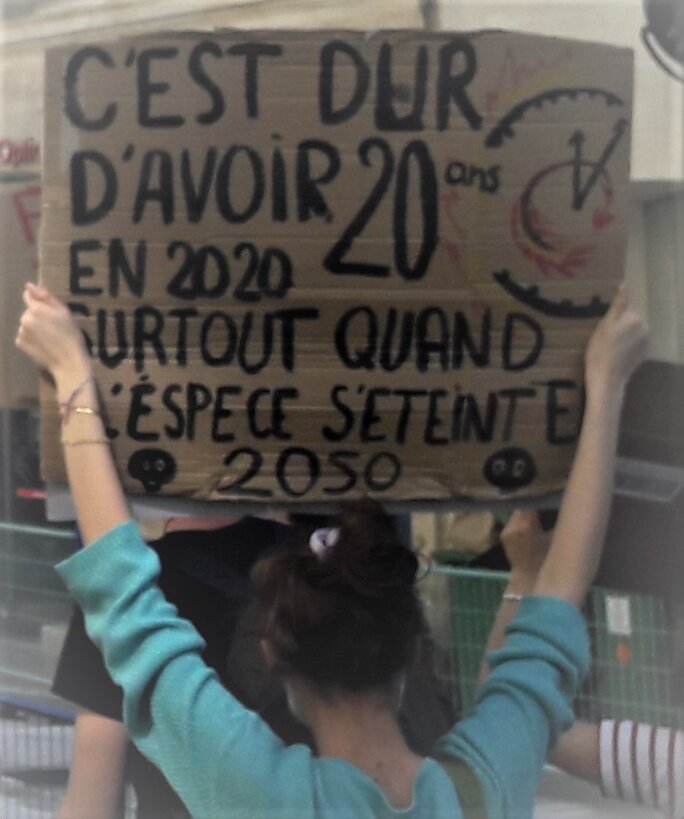 C'EST DUR
D'AVOIR 20 ans
EN 2020
SURTOUT QUAND
L'ÉSPECE S'ETEINT E
2050